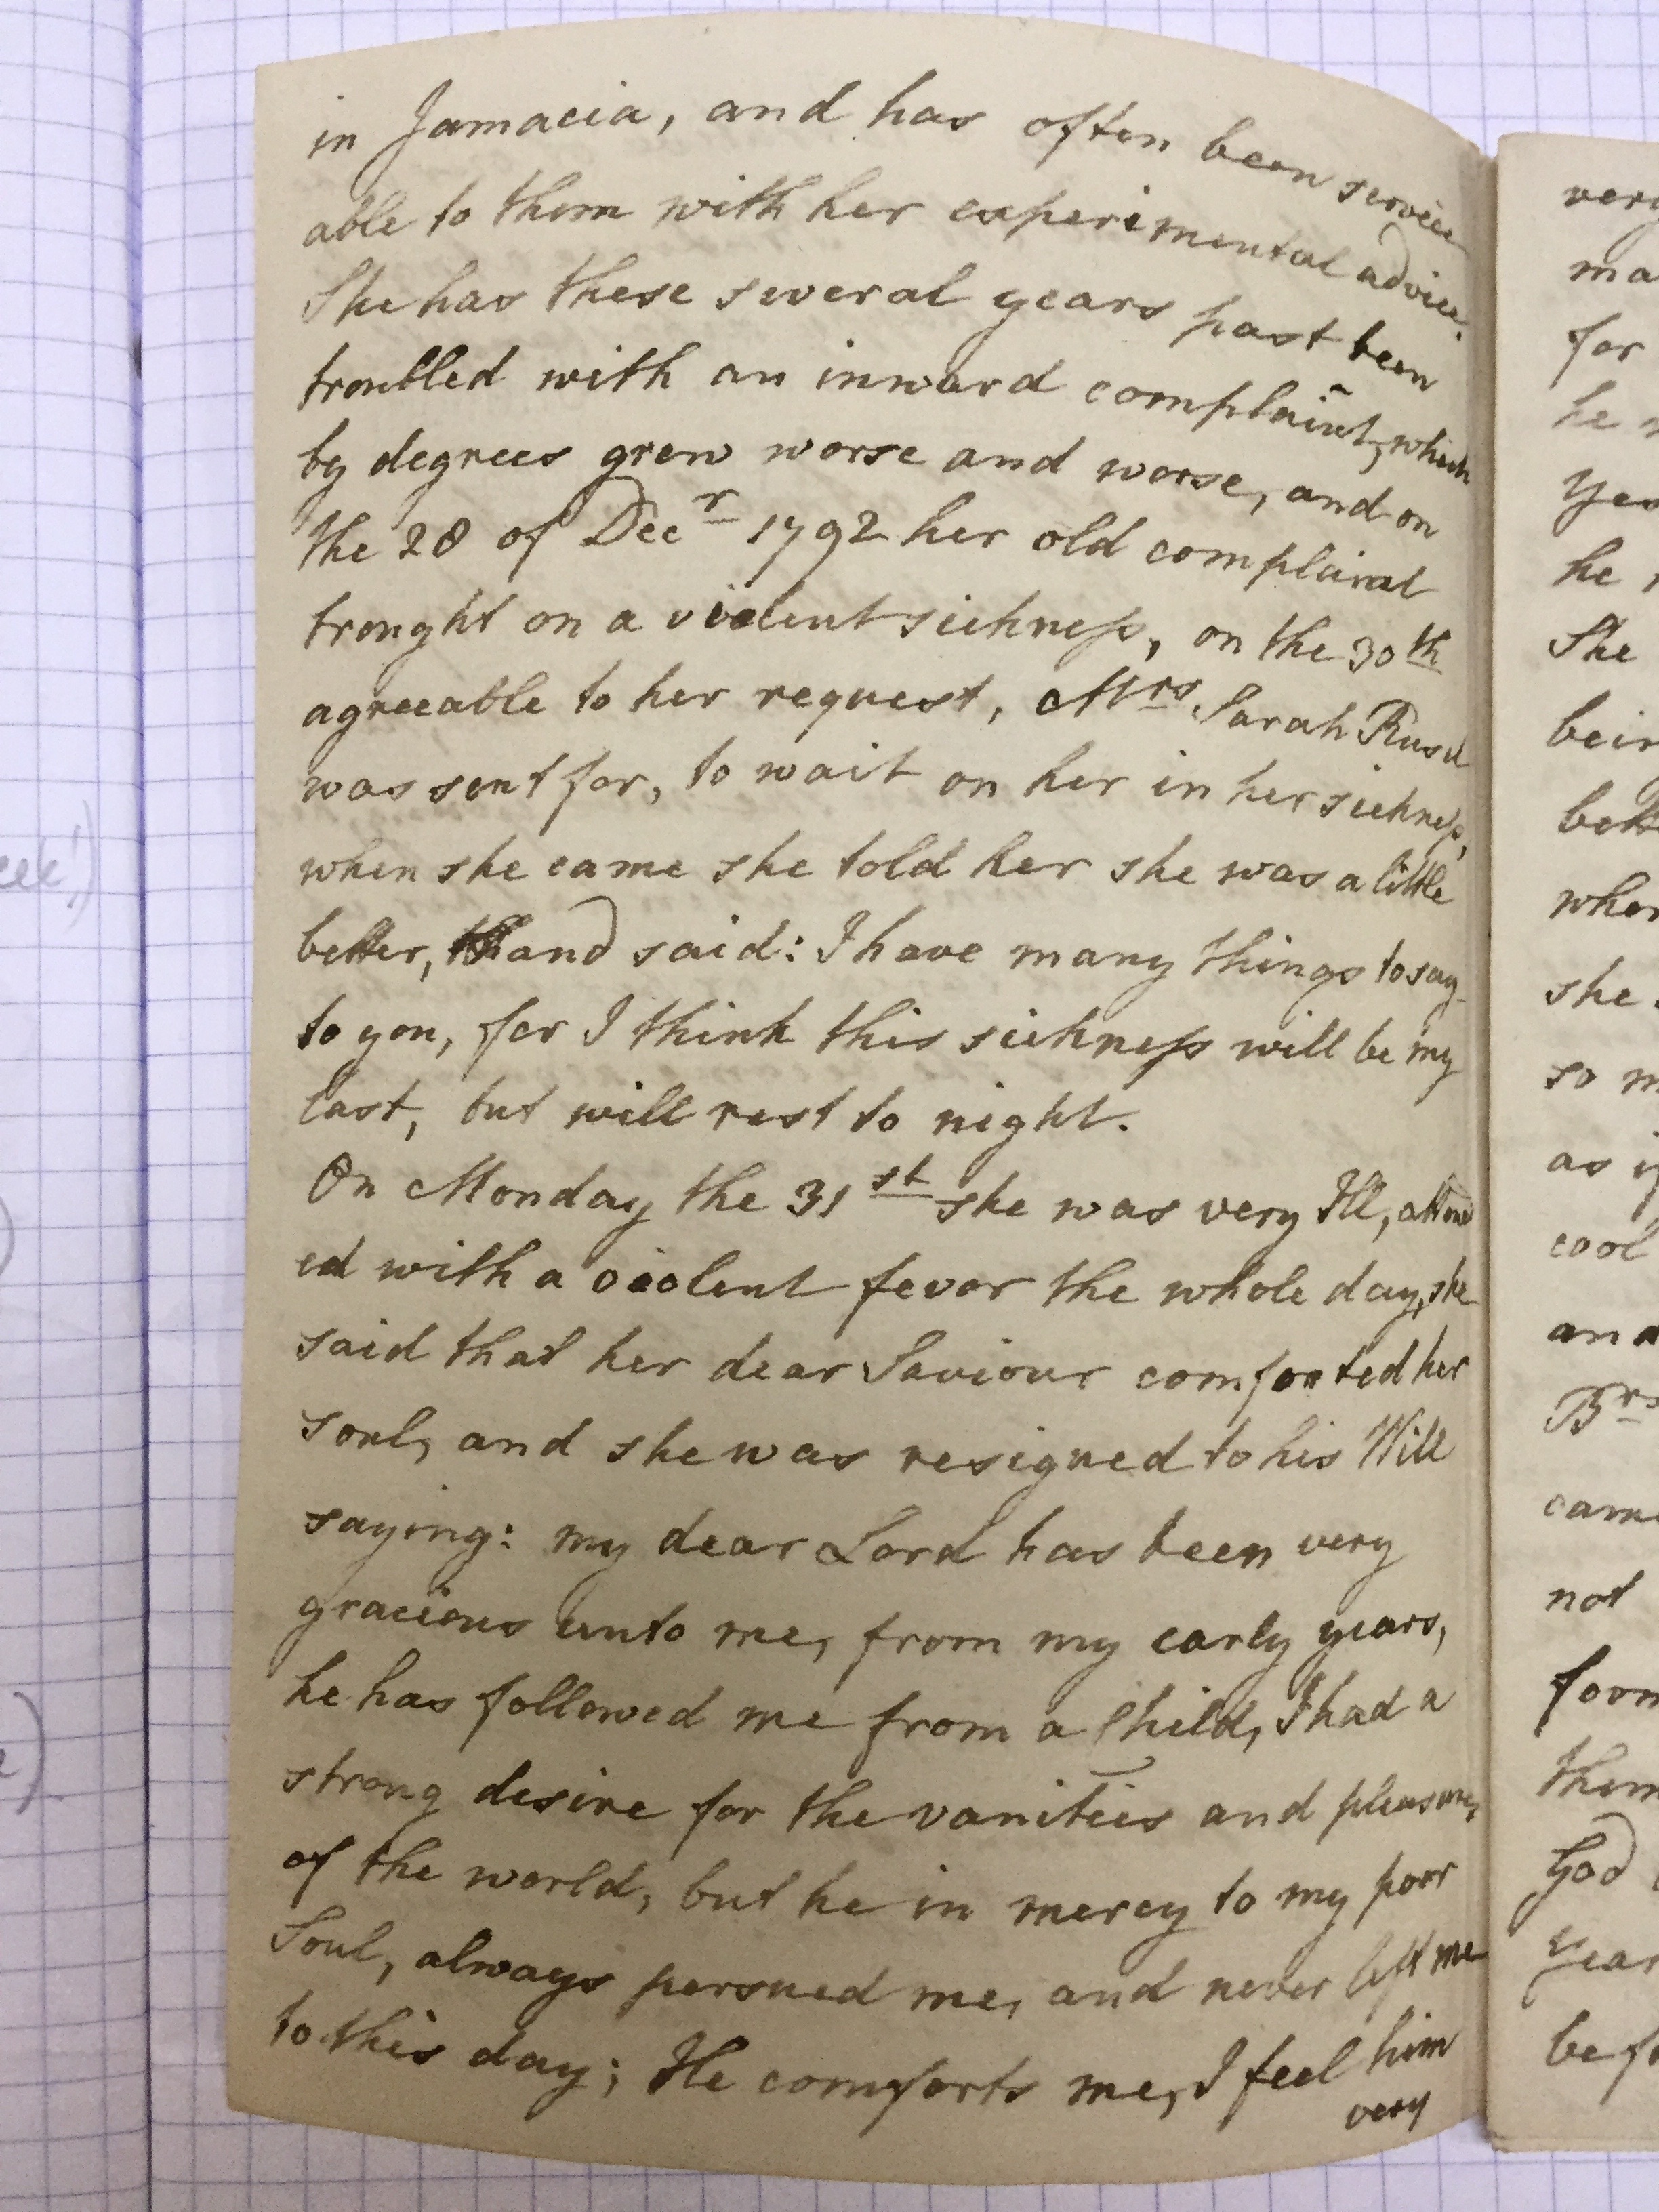 in Jamacia, and has often been service
able to them with her experimental advice.
She has these several years past been
troubled with an inward complaint, which
by degrees grew worse and worse, and on
the 28 of Decr 1792 her old complaint
brought on a violent sickness, on the 30th
agreeable to her request, Mrs Sarah
was sent for, to wait on her in her sickness,
when she came she told her she was a little
better, and said: I have many things to say
to you, for I think this sickness will be my
last, but will rest to night.
On Monday the 31st she was very Ill, attend
ed with a violent fevor the whole day, she
said that her dear Saviour comforted her
soul, and she was resigned to his Will
saying: my dear Lord has been very
gracious unto me, from my early years,
he has followed me from a Child, I had a
strong desire for the vanities and pleasures,
of the world, but he in mercy to my poor
Soul, always persued me, and never left me
to this day; He comforts me, I feel him
very
very
ma
for
he
yea
he
She
bein
bette
when
she
so m
as if
cool
and
Brs
came
not
form
them
God
year
be fo